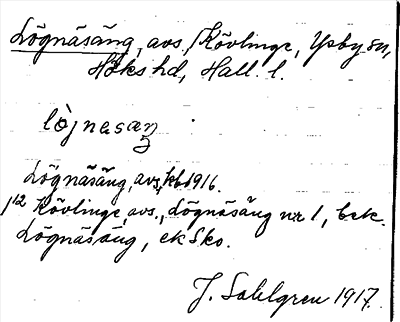 Lögnäsäng, avs./Kövlinge, Ysby sn,
Höks hd, Hall. l.
lö̀jnesaŋ
Lögnäsäng, avs, kbl 1916.
1/2 Kövlinge, avs., Lögnäsäng nr 1, bek.
Lögnäsäng, ek Sko.
J. Sahlgren 1917.